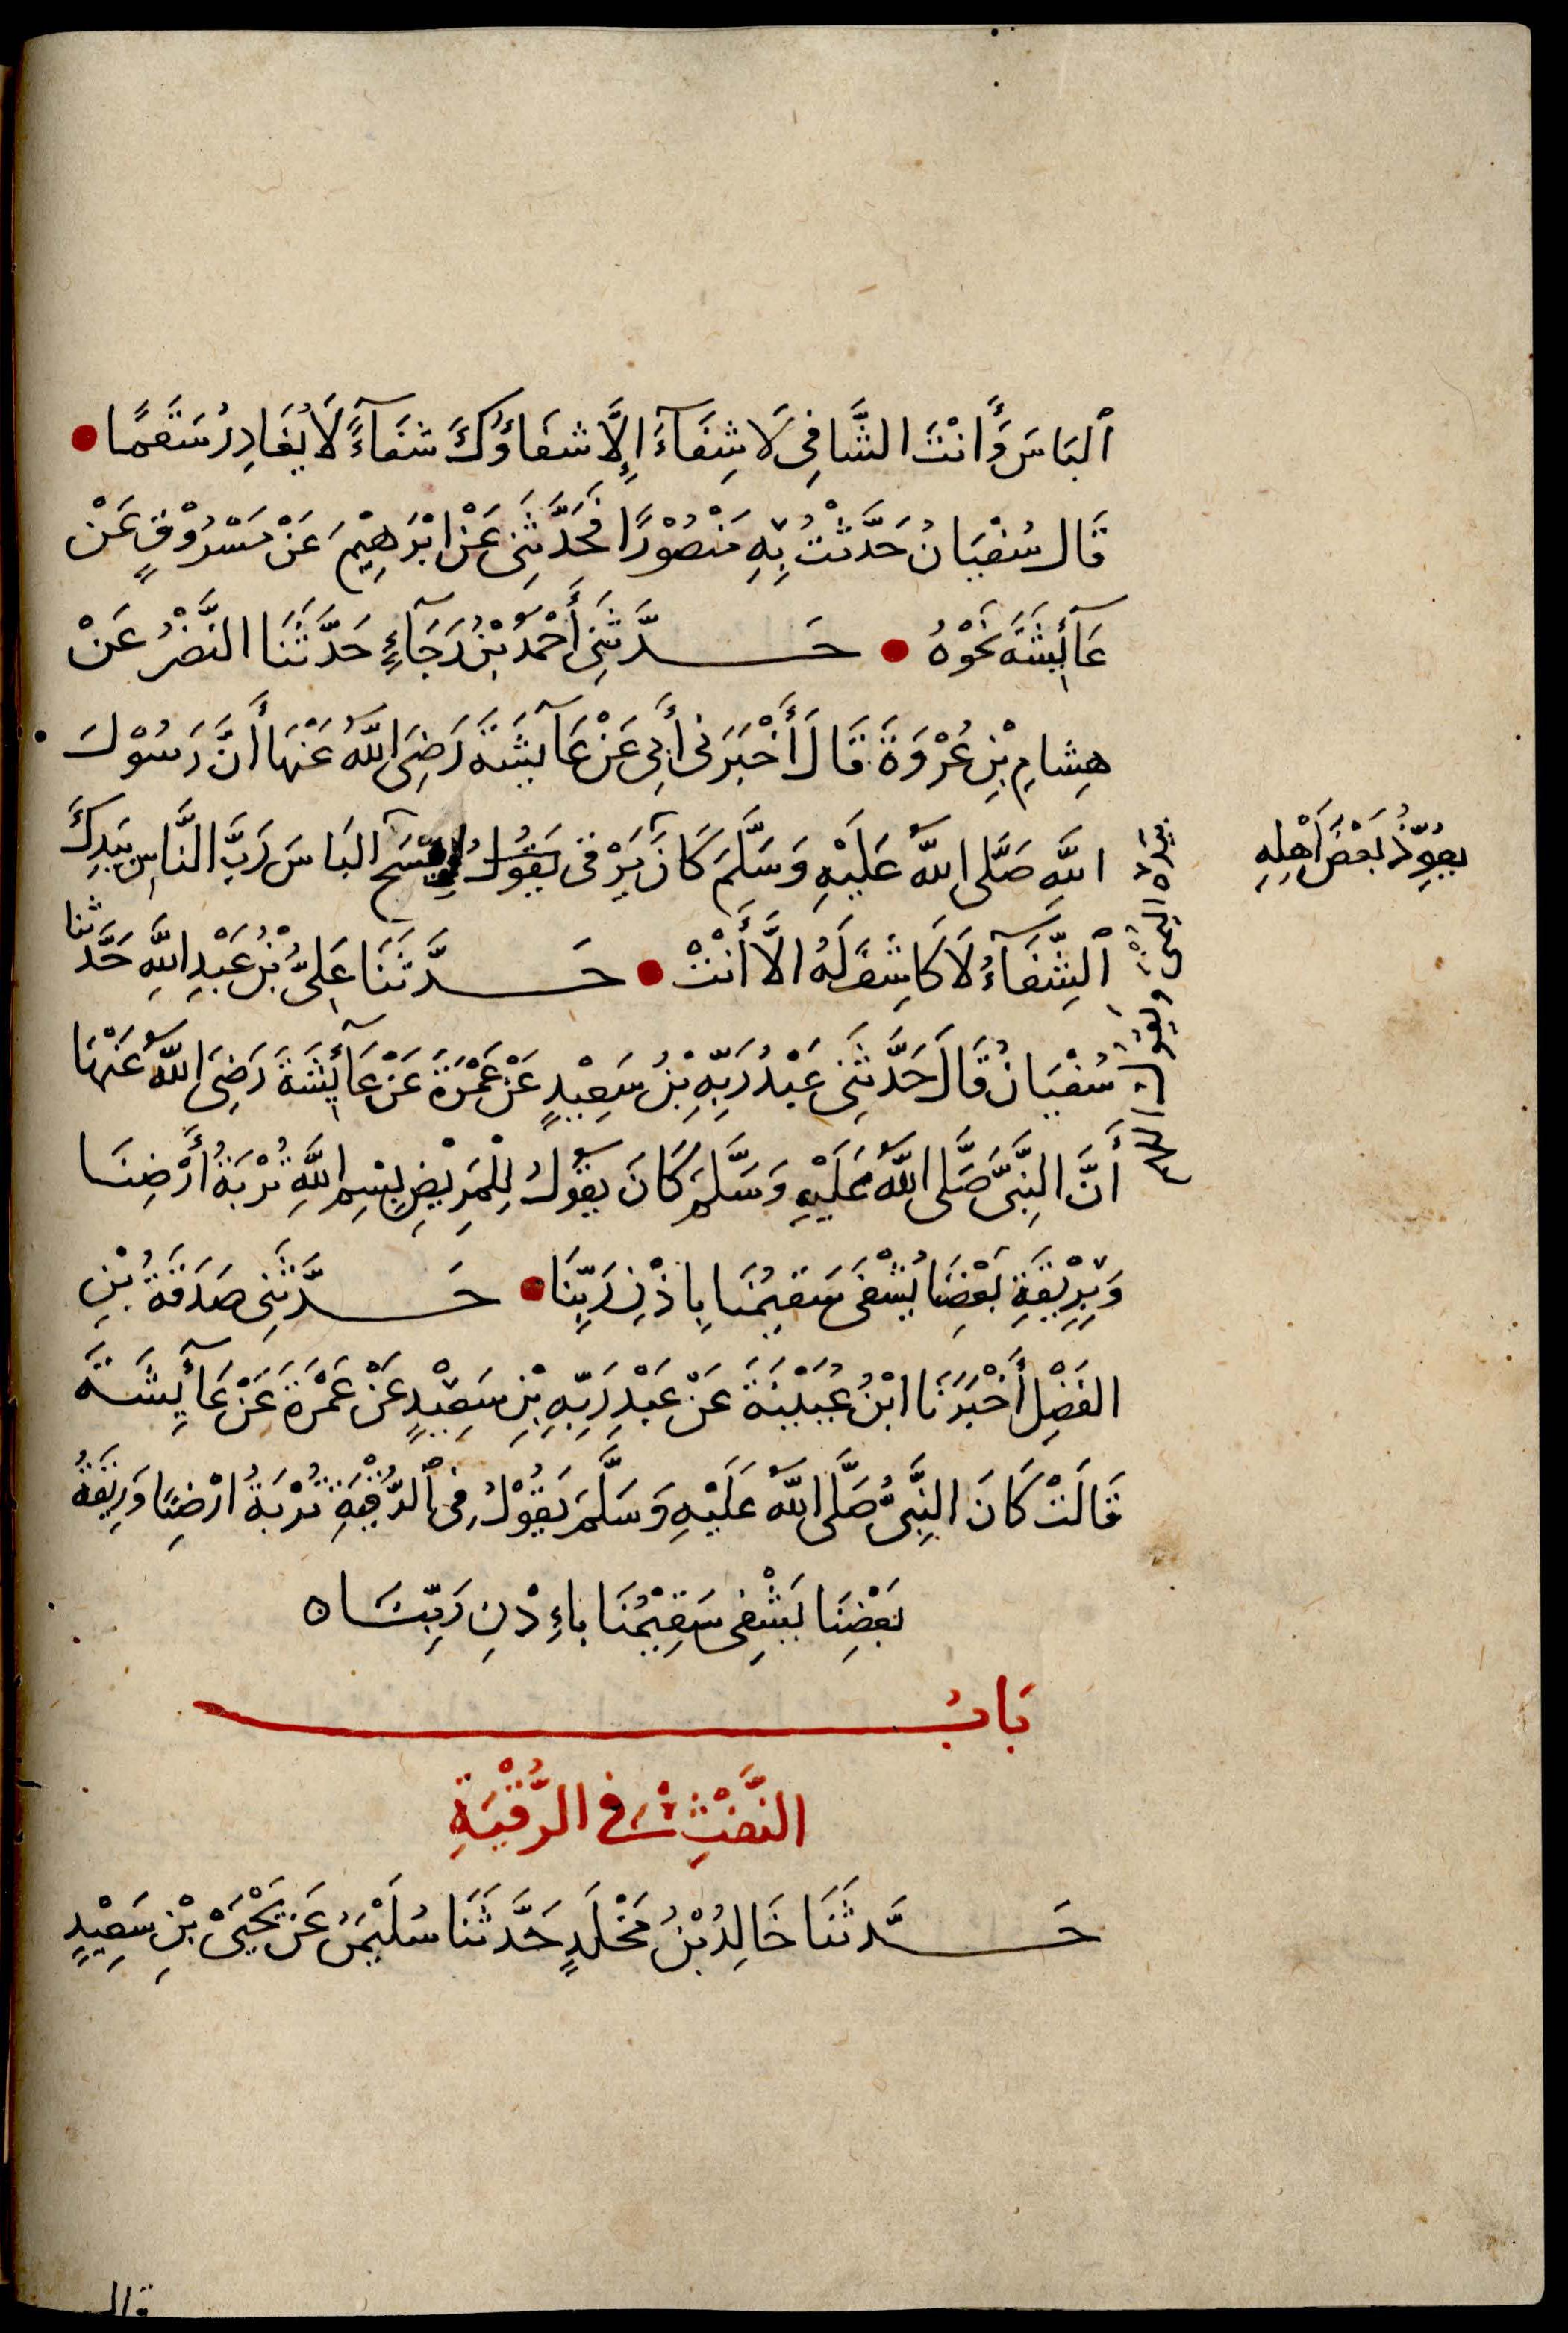 ٱلبَاسَ وَأَنْتَ الشَّافِى لَا شِفَآءَ اِلَّا شفَاؤُكَ شفَآءً لَا يُغَادِرُ سَقَمًا
قَال سُفْيَانُ حَدَّثْتُ بِهِ مَنْصُوْرًا فَحَدَّثَنِى عَنْ ابْرَهِيْمَ عَنْ مَسْرُوْقٍ عَنْ
عَآئِشَةَ نَحْوَهُ حَدَّثَنِى أَحْمَدُ بْنُ رَجَآءٍ حَدَّثَنَا النَّضْرُ عَنْ
هِشامِ بْنِ عُرْوَةَ قَالَ أَخْبَرَنى أَبِى عَنْ عَآيشَةَ رَضِىَ اللَّهُ عَنْهَا أَنَّ رَسُوْلَ
اللَّهِ صَلَّى اللَّهُ عَلَيْهِ وَسَلَّمَ كَانَ يَرْقى يَقُوْلُ امْسَحِ البَاسَ رَبَّ النَّاسِ بِيَدِكَ
ٱلشِّفَآءُ لَا كَاشِفَ لَهُ الَّا أَنْتَ حَدَّثَنَا عَلِىُّ بْنُ عَبْدِ اللَّهِ حَدَّثنا
سُفْيَانُ قَالَ حَدَّثَنِى عَبْدُ رَبِّهِ بْنُ سَعِيْدٍ عَنْ عَمْرَةَ عَنْ عَآئِشَةَ رَضِىَ اللَّهُ عَنْهَا
أَنَّ النَّبِىَّ صَلَّى اللَّهُ عَلَيْهِ وَسَلَّمَ كَانَ يَقُوْلُ لِلْمَرِيْضِ بِسْمِ اللَّهِ تُرْبَةُ أَرْضِنَا
وَبِرِيْقَةِ بَعْضِنَا يُشْفَى سَقِيمُنَا بِاذْنِ رَبِّنَا حَدَّثَنِى صَدَقَةُ بْنِ
الفَضْلِ أَخْبَرَنَا ابْنُ عُيَيْنَةَ عَنْ عَبْدِ رَبِّهِ بْنِ سَعِيْدٍ عَنْ عَمْرَةَ عَنْ عَآئِشَةَ
قَالَتْ كَانَ النَّبِىُّ صَلَّى اللَّهُ عَلَيْهِ وَسَلَّمَ يَقُوْلُ فِى ٱلرُّقْيَةِ تُرْبَةُ ارْضِنَا وَرِيْقَةُ
بَعْضِنَا يَشْفِى سَقِيْمُنَا باءِذْنِ رَبِّنَا ه
بَابُ
النَّفْثِ فى الرُّقْيَةِ
حَدَّثَنَا خَالِدُ بْنُ مَخْلَدٍ حَدَّثَنَا سُلَيْمنُ عَنْ يَحْيَى بْنِ سَعِيْدٍ
يعوِّذُ بَعْضَ أَهْلِهِ
قال